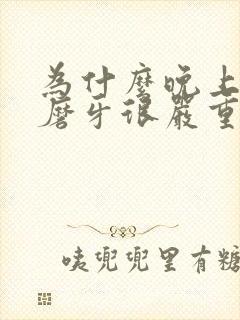 为什麽晚上
磨牙很嚴重
咦兜兜里有糖